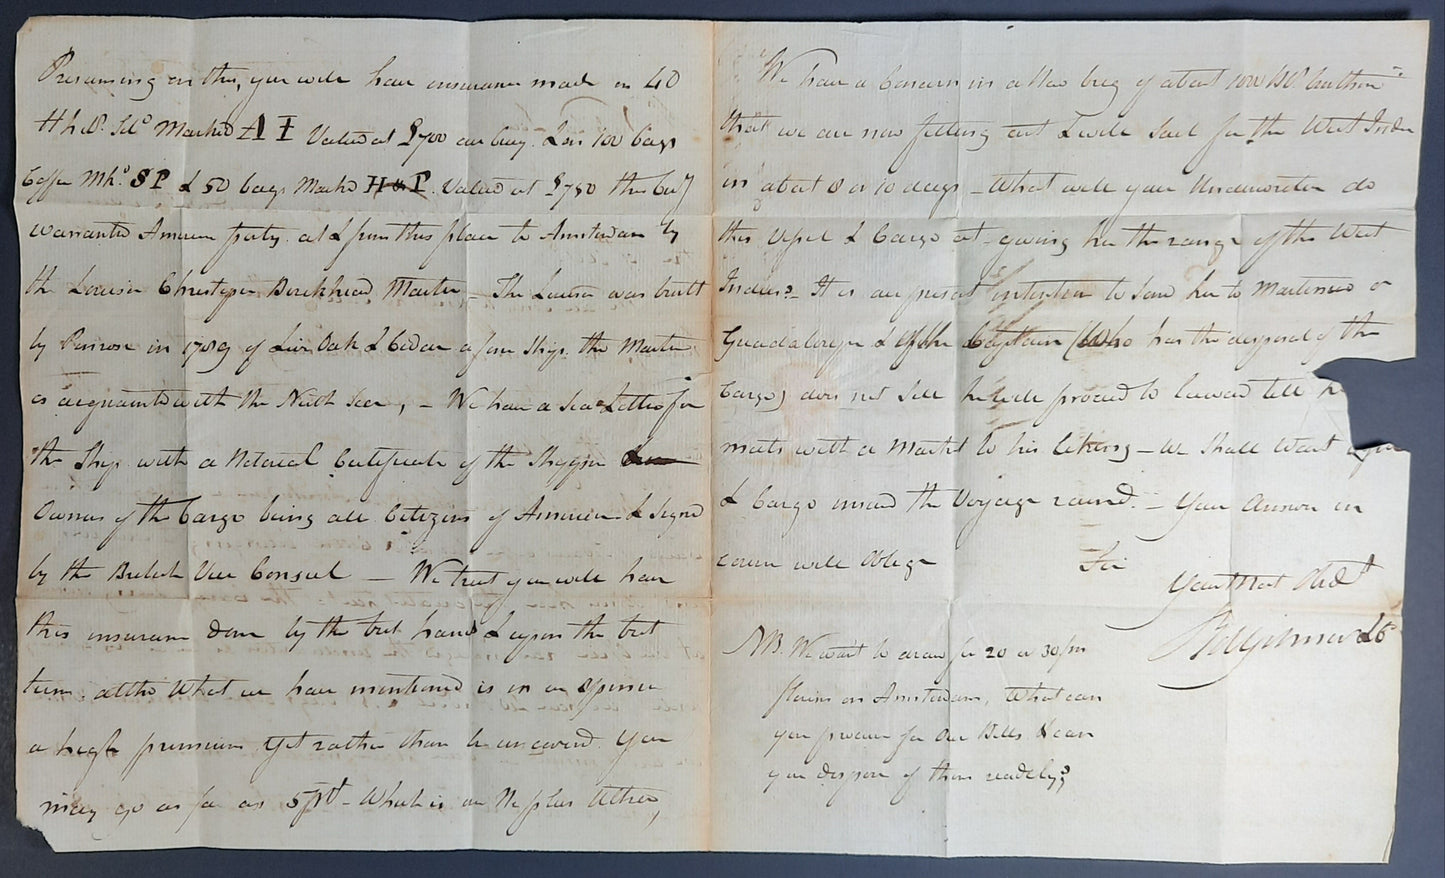 Presuming on this, you will have insurance made on 40
Hhds. Marked AI Valued at £700 our Curry. & on 100 bags
Coffee Mkd. SP & 50 bags Marked H&P. Valued at £750 this Curry
Warranted American property. at & from this place to Amsterdam by
the Louisa Christopher Birckhead Master – The Louisa was built
by Penrose in 1789 of Live Oak & Cedar a fine Ship. the Master
is acquainted with the North Sea, – We have a Sea Letter for
the Ship with a Notarial Certificate of the Shipper
Owners of the Cargo being all Citizens of America & Signed
by the British Vice Consul – We trust you will have
this insurance done by the best hands & upon the best
terms. altho What we have mentioned is in our Opinion
a high premium. Yet rather than be uncovered. You
may go as far as 5 PCt – Which is our Ne plus Ultra,
We have a Concern in a New brig of about 1000 bbls. burthen
that we are now fitting out & will Sail for the West Indies
in about 8 or 10 days – What will your Underwriters do
this Vessel & Cargo at – giving her the range of the West
Indies? – It is our present intention to Send her to Martinico or
Guadaloupe & if the Captain (Who has the disposal of the
Cargo) does not Sell he will proceed to leeward till h
meets with a Market to his liking – We Shall Want
& Cargo insured the Voyage round. – Your Answer in
course will Oblige Sir
Your Most Obdt
& Co
NB. We want to draw for 20 or 30/m
florins on Amsterdam, What can
you procure for Our Bills & can
you dispose of them readily?